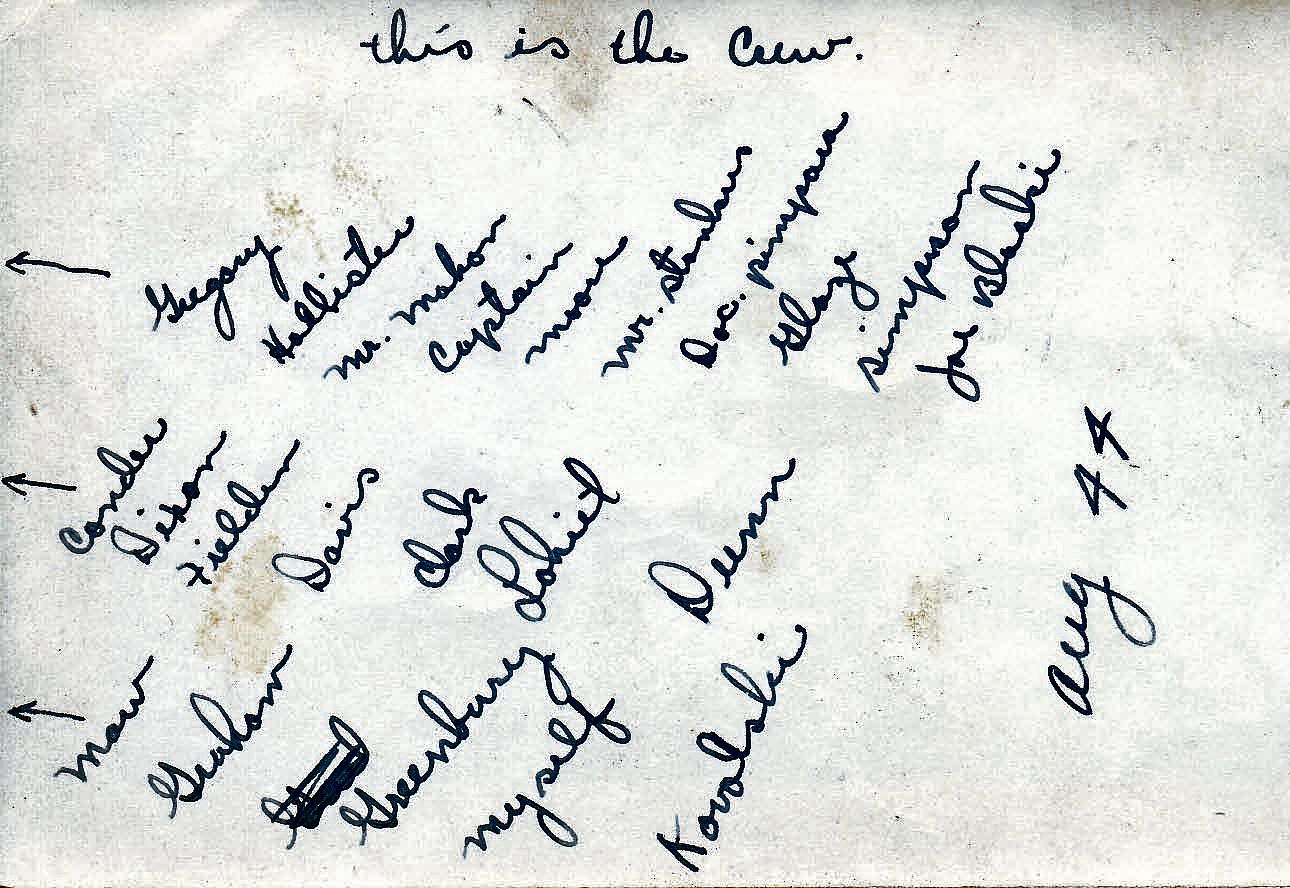 this is the Crew.
Gregory
Hollister
Mr. Mahon
Captain
Moore
Mr.
Doc. Simpson
Glaze
Simpson
Joe
Conder
Dixon
Fielden
Davis
Clark
Dunn
Maw
Graham
Greenbury
myself
Kovalski
Aug 44